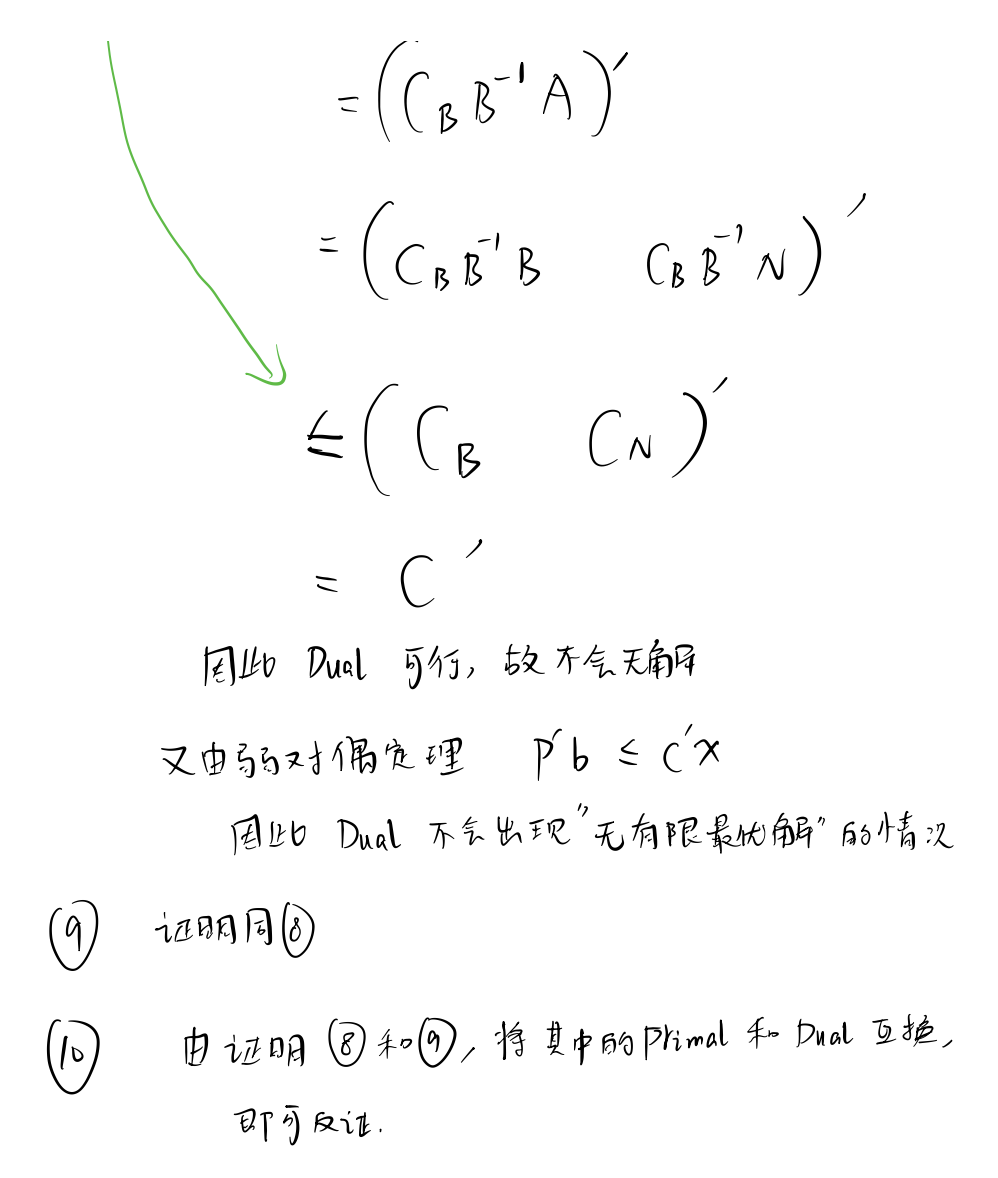 = (C_B B^{-1} A)'
= (C_B B^{-1} B   C_B B^{-1} N)'
≤ (C_B   C_N)'
= C'
因此 Dual 可行, 故不会无解
又由弱对偶定理   p'b ≤ c'x
因此 Dual 不会出现"无有限最优解"的情况
⑨ 证明同⑧
⑩ 由证明⑧和⑨, 将其中的 Primal 和 Dual 互换,
即可反证.